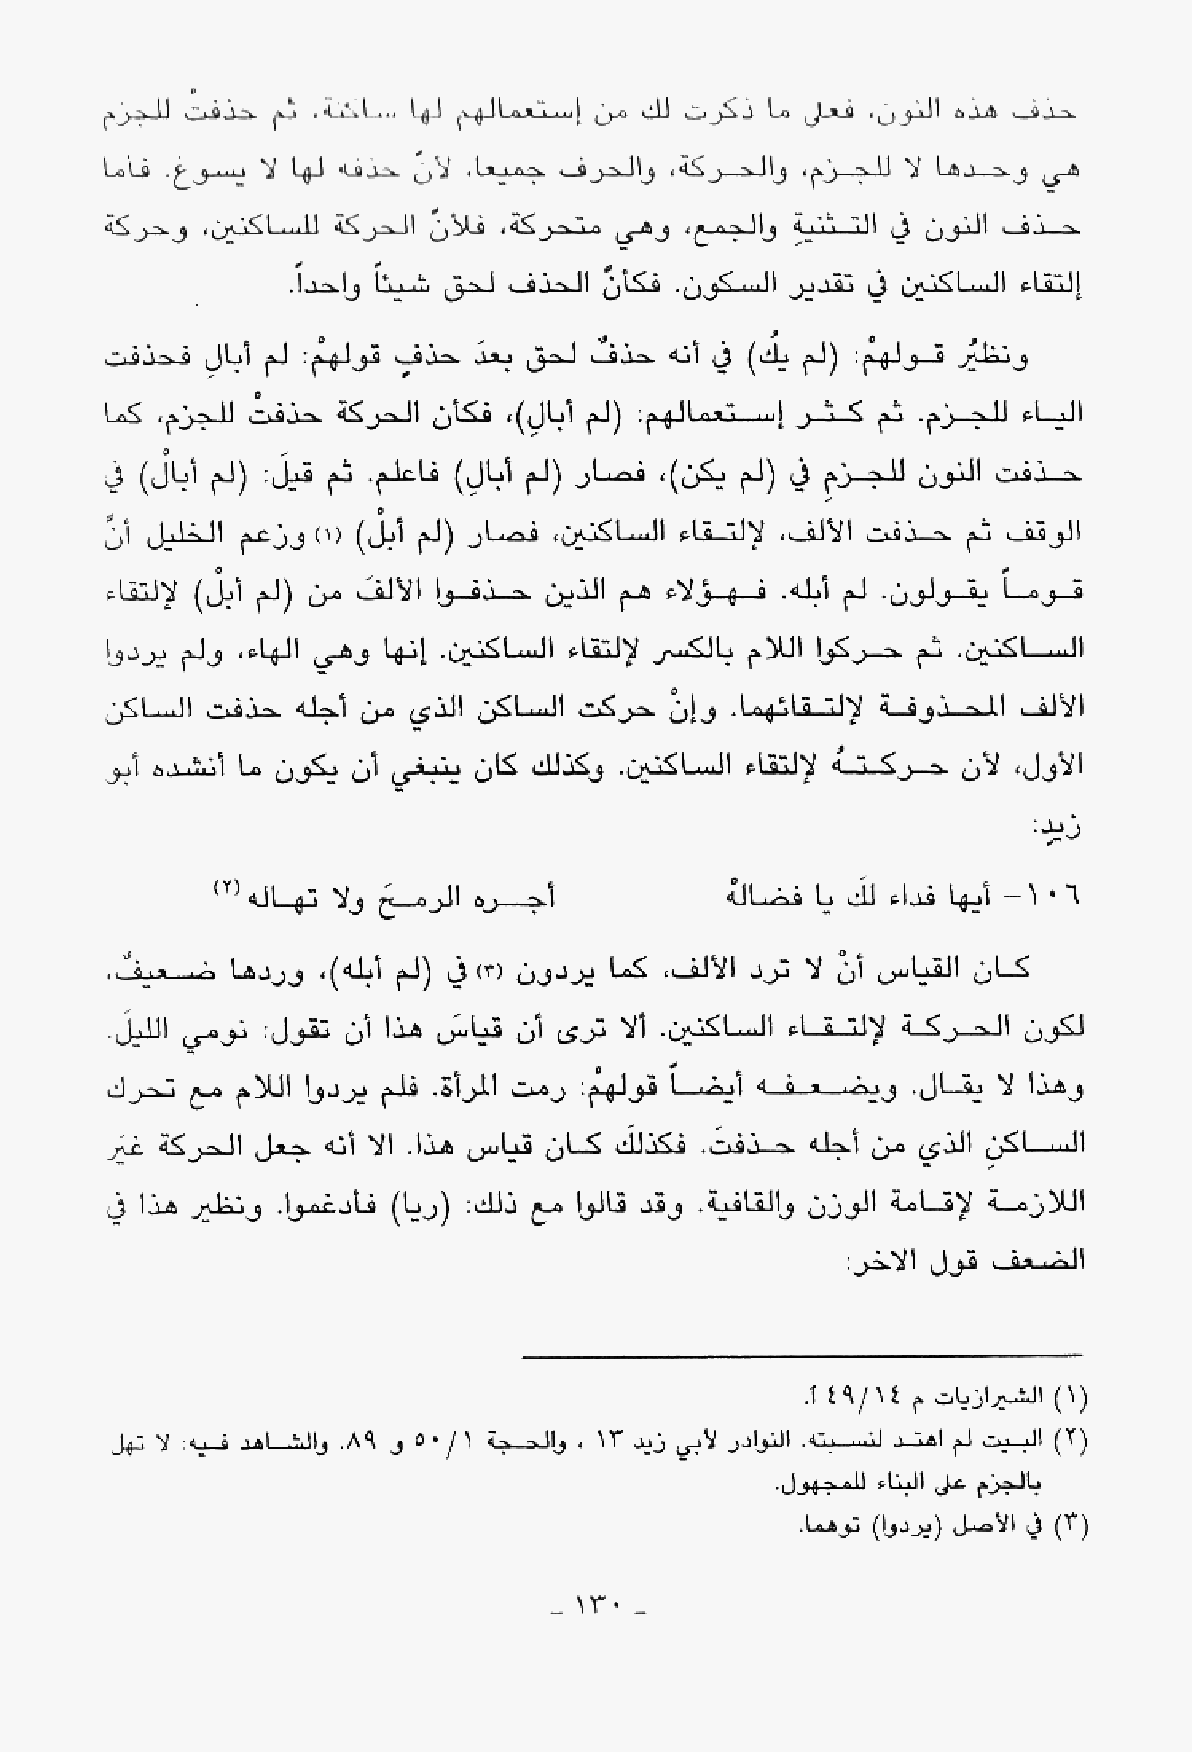 حذف هذه النون، فعلى ما ذكرت لك من إستعمالهم لها ساكنة، ثم حذفتْ للجزم
هي وحدها لا للجزم، والحركة، والحرف جميعا، لأنّ حذفه لها لا يسوغ. فأما
حذف النون في التثنيةِ والجمع، وهي متحركة، فلأنّ الحركة للساكنين، وحركة
إلتقاء الساكنين في تقدير السكون. فكأنّ الحذف لحق شيئاً واحداً.
ونظيُر قولهمْ: (لم يكُ) في أنه حذفٌ لحق بعدَ حذفٍ قولهمْ: لم أبالِ فحذفت
الياء للجزم. ثم كثر إستعمالهم: (لم أبالِ)، فكأن الحركة حذفتْ للجزم، كما
حذفت النون للجزمِ في (لم يكن)، فصار (لم أبالِ) فاعلم. ثم قيلَ: (لم أبالْ) في
الوقف ثم حذفت الألف، لإلتقاء الساكنين، فصار (لم أبلْ) (١) وزعم الخليل أنّ
قوماً يقولون. لم أبله. فهؤلاء هم الذين حذفوا الألفَ من (لم أبلْ) لإلتقاء
الساكنين. ثم حركوا اللام بالكسر لإلتقاء الساكنين. إنها وهي الهاء، ولم يردوا
الألف المحذوفة لإلتقائهما. وإنْ حركت الساكن الذي من أجله حذفت الساكن
الأول، لأن حركتهُ لإلتقاء الساكنين. وكذلك كان ينبغي أن يكون ما أنشده أبو
زيدٍ:
١٠٦- أيها فداء لكَ يا فضالهْ أجره الرمحَ ولا تهاله (٢)
كان القياس أنْ لا ترد الألف، كما يردون (٣) في (لم أبله)، وردها ضعيفٌ،
لكون الحركة لإلتقاء الساكنين. ألا ترى أن قياسَ هذا أن تقول: نومي الليلَ.
وهذا لا يقال. ويضعفه أيضاً قولهمْ: رمت المرأة. فلم يردوا اللام مع تحرك
الساكنِ الذي من أجله حذفتَ. فكذلكَ كان قياس هذا. الا أنه جعل الحركة غيَر
اللازمة لإقامة الوزن والقافية. وقد قالوا مع ذلك: (ريا) فأدغموا. ونظير هذا في
الضعف قول الاخر:
(١) الشيرازيات م ١٤/٤٩ أ.
(٢) البيت لم اهتد لنسبته. النوادر لأبي زيد ١٣ ، والحجة ١/٥٠ و ٨٩. والشاهد فيه: لا تهل
بالجزم على البناء للمجهول.
(٣) في الأصل (يردوا) توهما.
_ ١٣٠ _